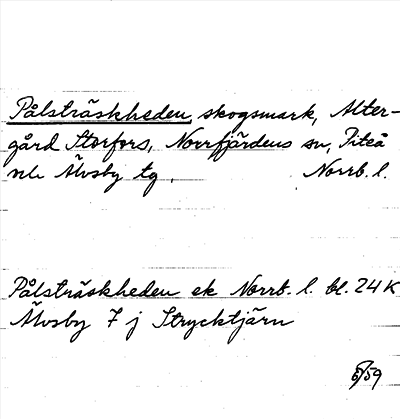 Pålsträskheden, skogsmark, Alter-
gård Storfors, Norrfjärdens sn, Piteå
o. Älvsby tg. Norrb. l.
Pålsträskheden ek Norrb. l. bl. 24 K
Älvsby 7 j Strycktjärn
5/59